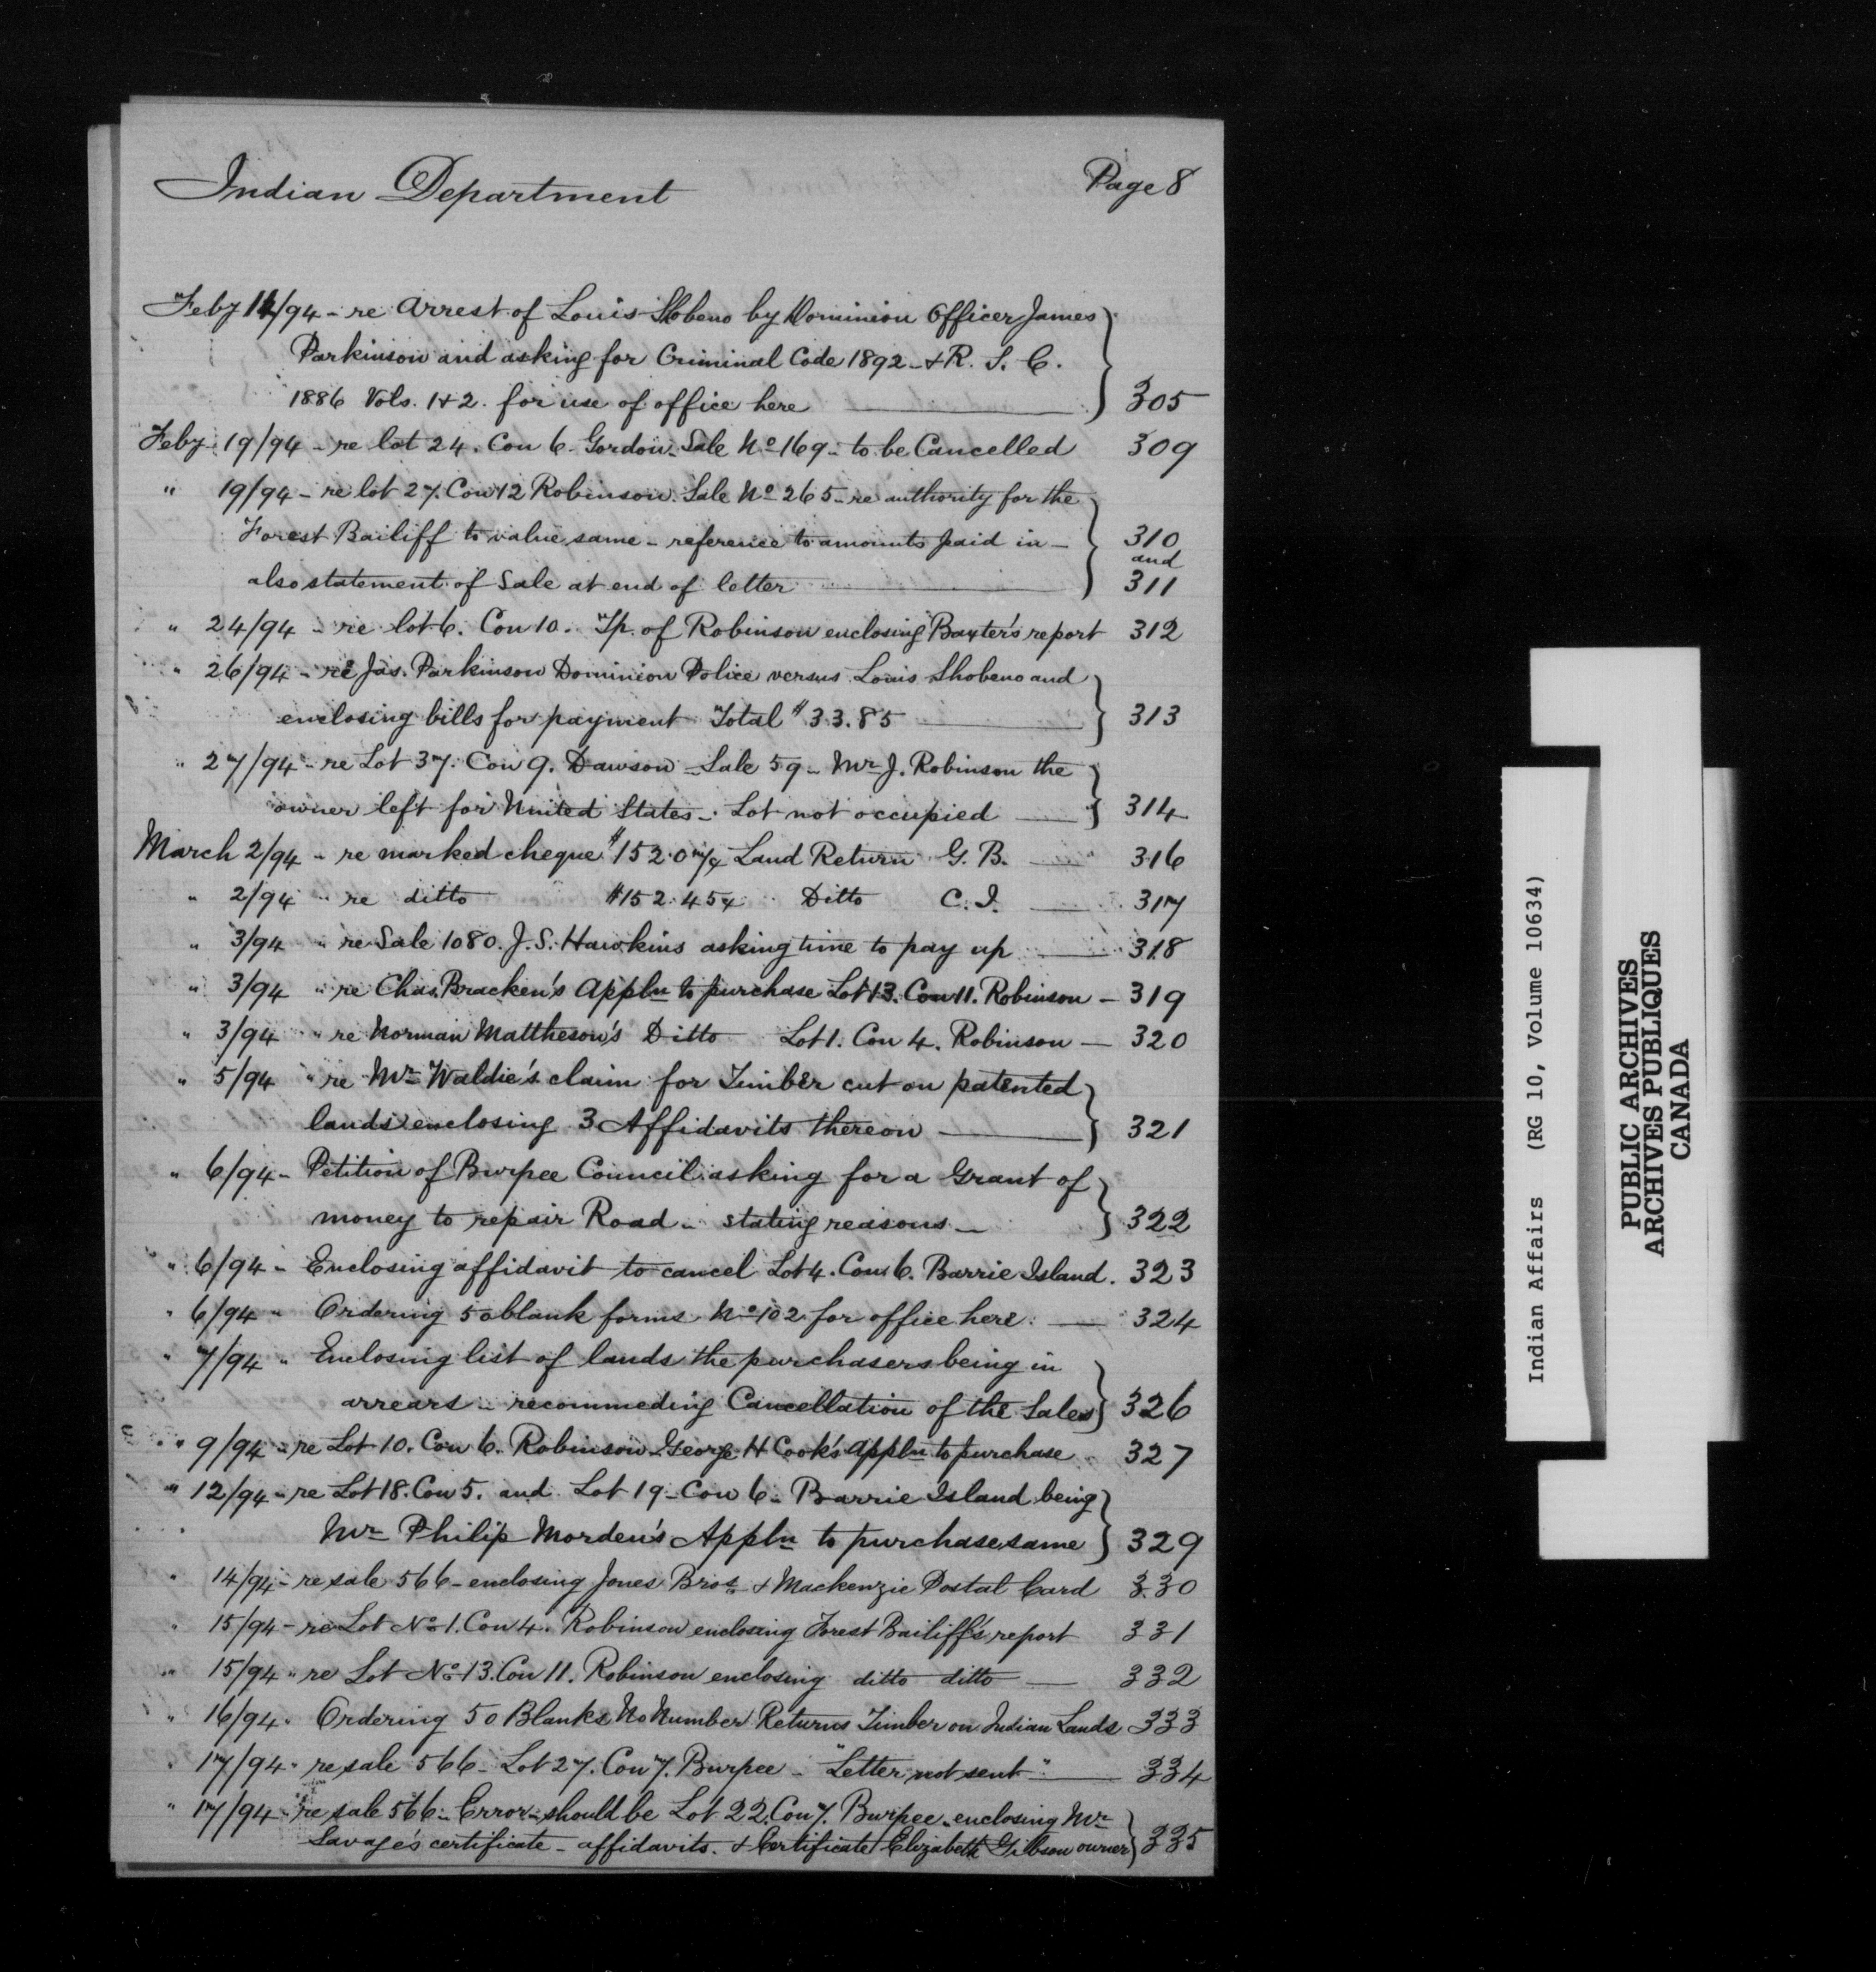 Indian Department Page 8
Feby 14/94 - re arrest of Louis Shobeno by Dominion Officer James
Parkinson and asking for Criminal Code 1892 - & R. S. C.
1886 Vols. 1 & 2. for use of office here 305
Feby 19/94 - re lot 24. Con 6. Gordon. Sale No 169 - to be Cancelled 309
" 19/94 - re lot 27. Con 12 Robinson. Sale No 265 - re authority for the
Forest Bailiff to value same - reference to amounts paid in - 310
and
also statement of Sale at end of letter 311
" 24/94 - re lot 6. Con 10. Tp. of Robinson enclosing Baxter's report 312
" 26/94 - re Jas. Parkinson Dominion Police versus Louis Shobeno and
enclosing bills for payment Total $33.85 313
" 27/94 - re Lot 37. Con 9. Dawson - Sale 59 - Mr J. Robinson the
owner left for United States - Lot not occupied 314
March 2/94 - re marked cheque $152.07/x Land Return G. B. 316
" 2/94 " re ditto $152.45x Ditto C. I. 317
" 3/94 " re Sale 1080. J. S. Hawkins asking time to pay up 318
" 3/94 " re Chas. Bracken's Appln to purchase Lot 13. Con 11. Robinson - 319
" 3/94 " re Norman Mattheson's Ditto Lot 1. Con 4. Robinson - 320
" 5/94 " re Mr Waldie's claim for Timber cut on patented
lands enclosing 3 Affidavits thereon 321
" 6/94 - Petition of Burpee Council asking for a Grant of
money to repair Road - stating reasons - 322
" 6/94 - Enclosing affidavit to cancel Lot 4. Con 6. Barrie Island. 323
" 6/94 " Ordering 50 blank forms No 102 for office here. 324
" 7/94 " Enclosing list of lands the purchasers being in
arrears - recommeding Cancellation of the Sales 326
" 9/94 - re Lot 10. Con 6. Robinson - George H Cook's appln to purchase 327
" 12/94 - re Lot 18. Con 5. and Lot 19 - Con 6 - Barrie Island being
Mr Philip Morden's Appln to purchase same 329
" 14/94 - re sale 566 - enclosing Jones Bros. & Mackenzie Postal Card 330
" 15/94 - re Lot No 1. Con 4. Robinson enclosing Forest Bailiff's report 331
" 15/94 " re Lot No 13. Con 11. Robinson enclosing ditto ditto 332
" 16/94 " Ordering 50 Blanks No Number Returns Timber on Indian Lands 333
" 17/94 " re sale 566 - Lot 27. Con 7. Burpee - "Letter not sent" 334
" 17/94 - re sale 566 - Error - should be Lot 22. Con 7. Burpee - enclosing Mr
Savage's certificate - affidavits. & Certificate Elizabeth Gibson owner 335
Indian Affairs (RG 10, Volume 10634)
PUBLIC ARCHIVES
ARCHIVES PUBLIQUES
CANADA